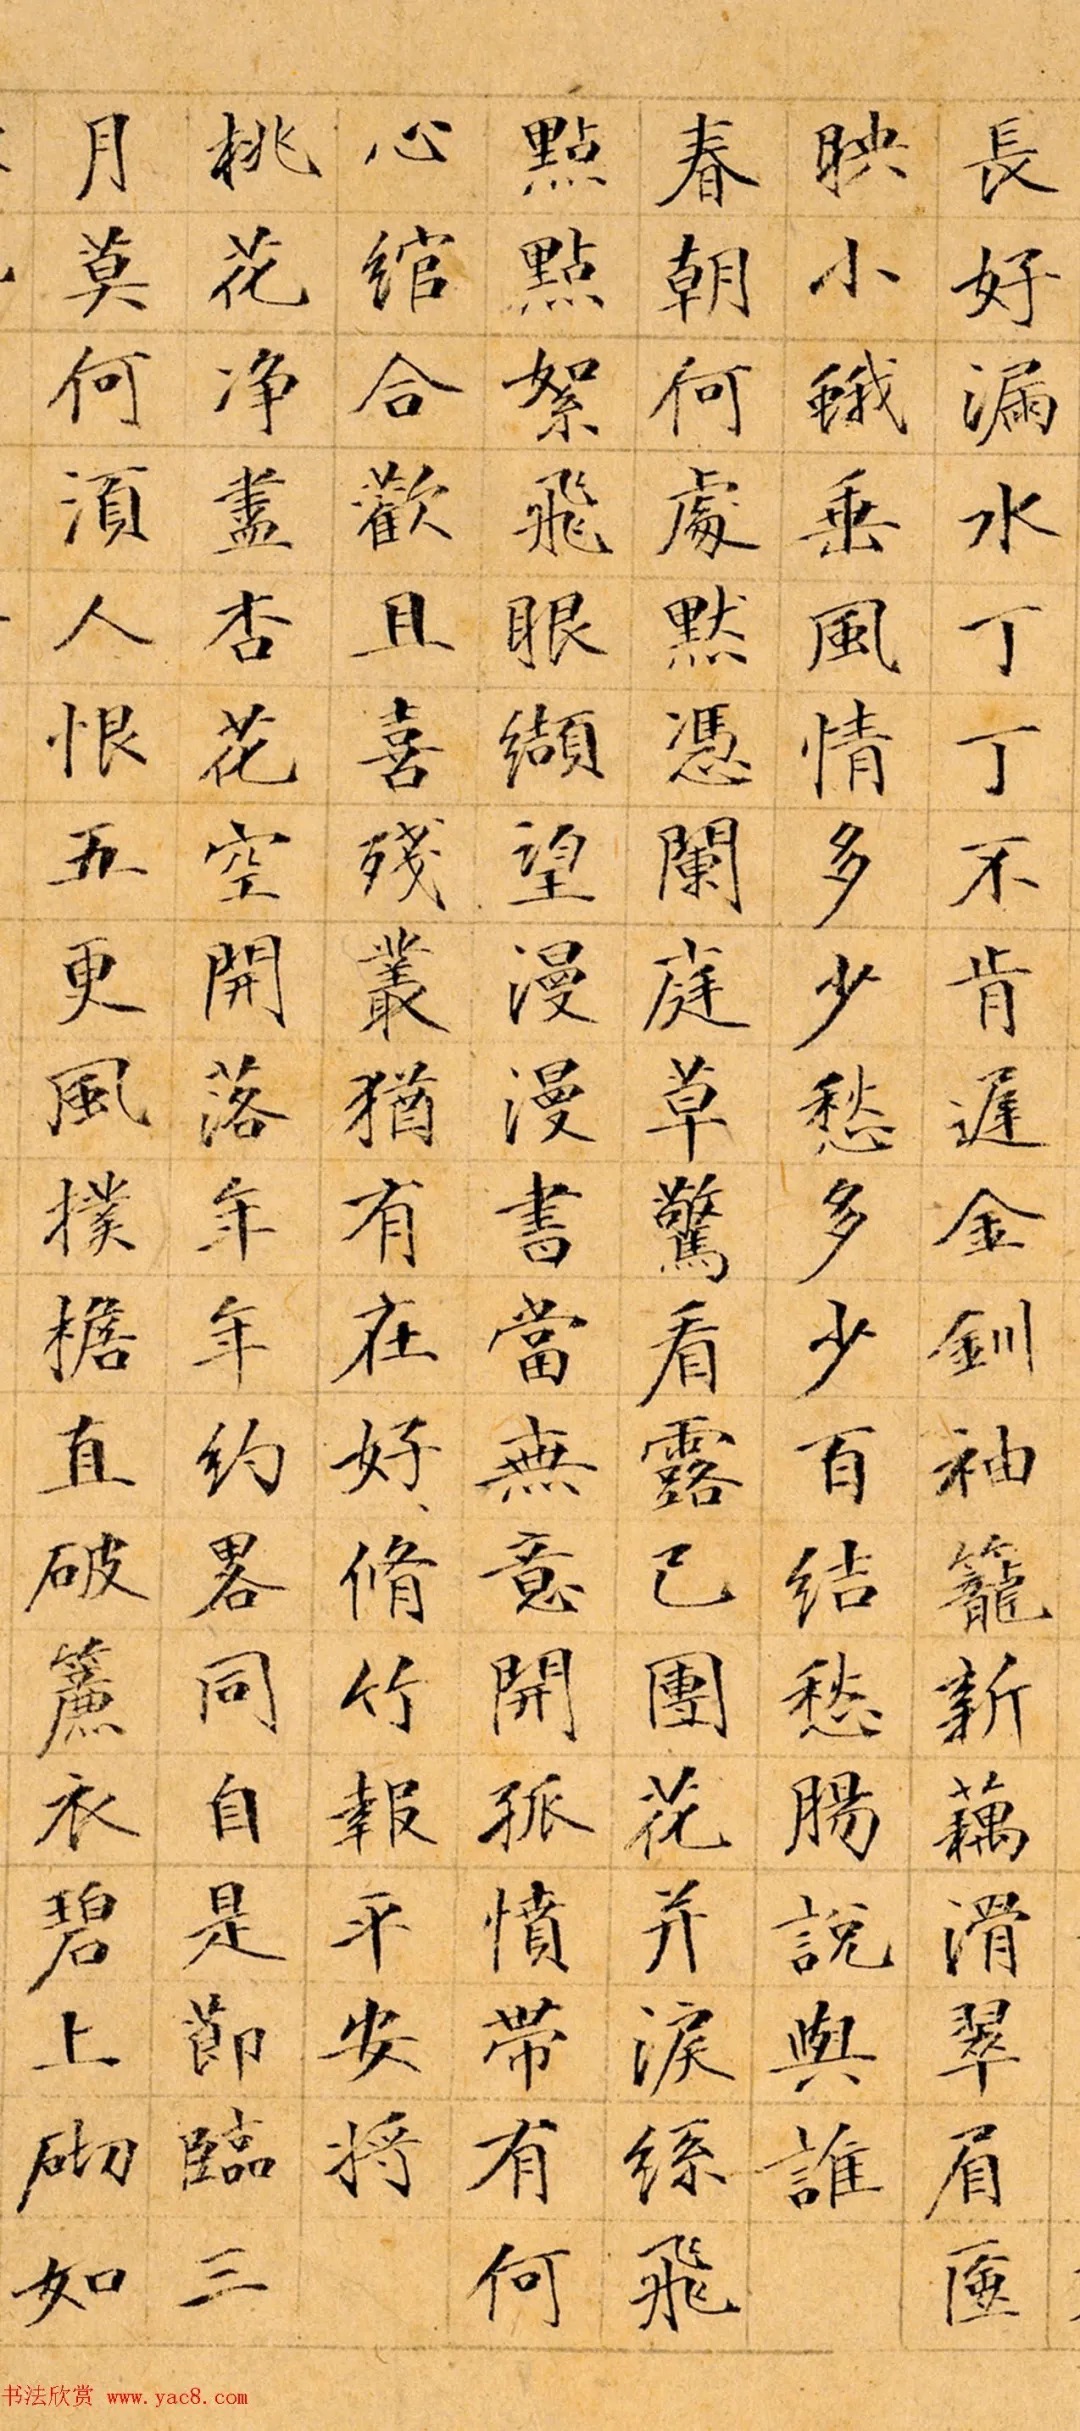 長好漏水丁丁不肯遲金釧袖籠新藕滑翠眉匳
映小蛾垂風情多少愁多少百結愁腸說與誰
春朝何處默憑闌庭草驚看露已團花并淚絲飛
點點絮飛眼纈望漫漫書當無意開孤憤帶有何
心綰合歡且喜殘叢猶有在好修竹報平安將
桃花净盡杏花空開落年年約畧同自是節臨三
月莫何須人恨五更風撲檐直破簾衣碧上砌如
书法欣赏 www.yac8.com